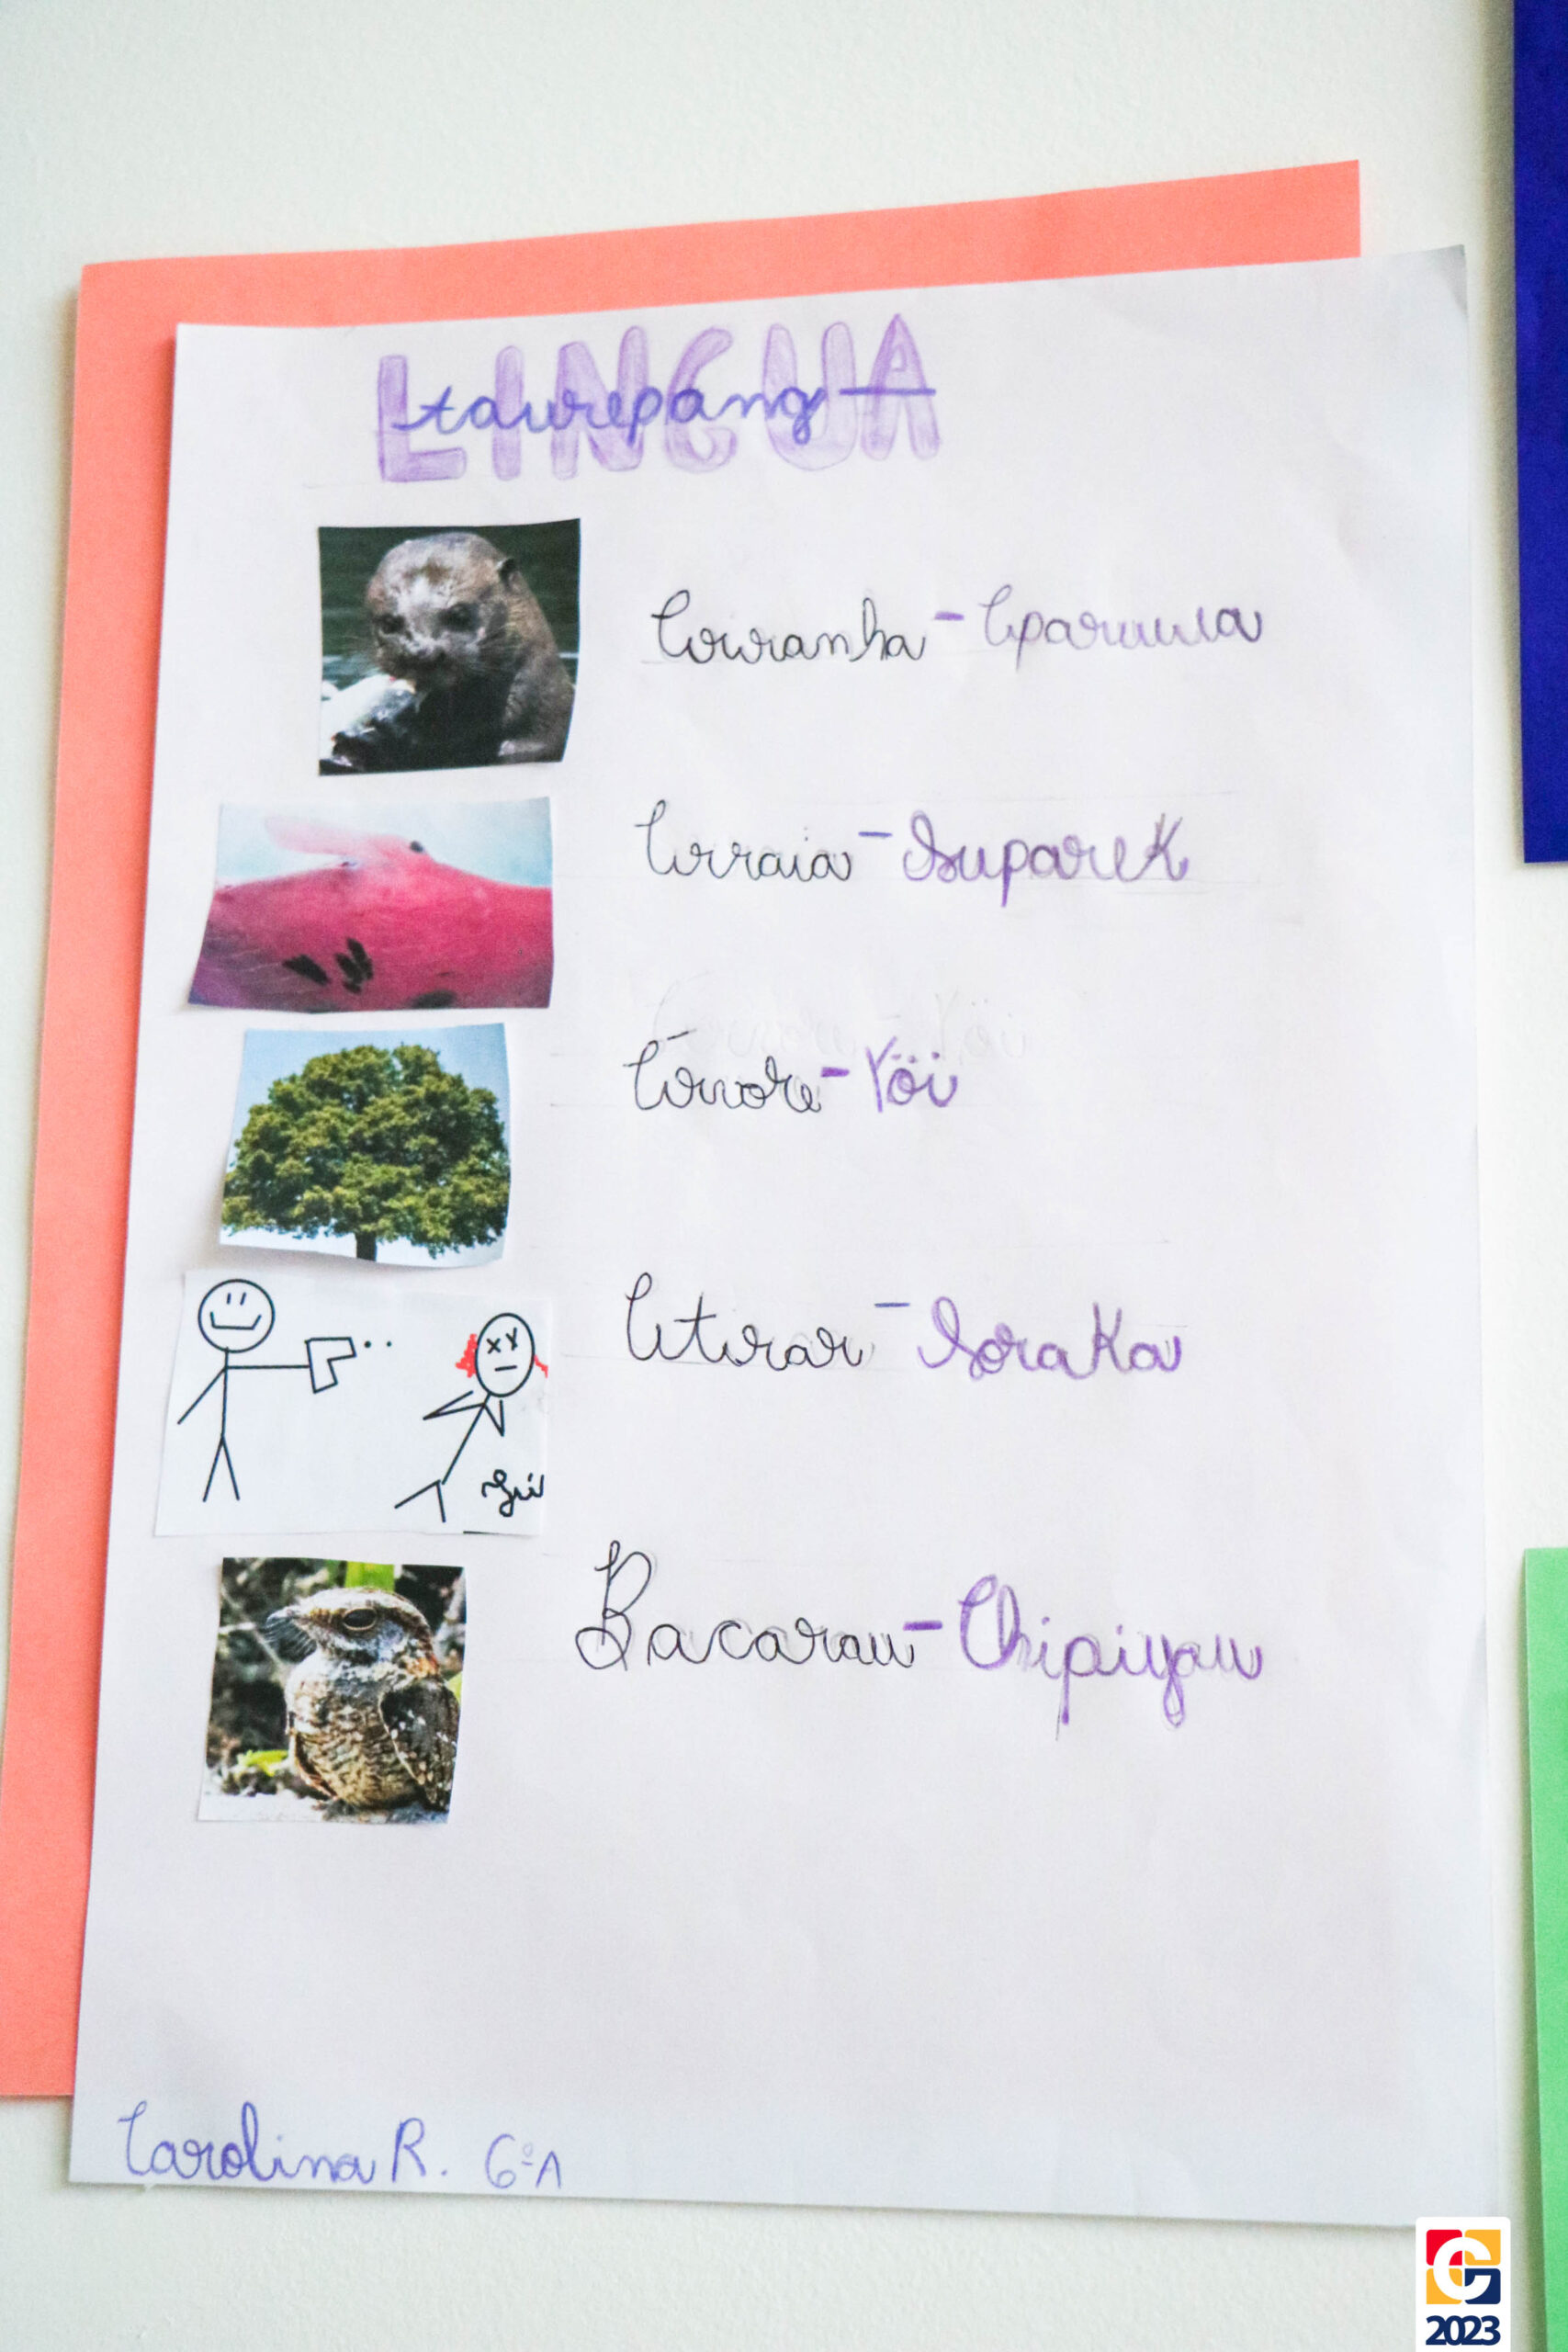 LINGUA
taurepang
Ariranha -
Arraia - Suparek
Árvore - Yöi
Atirar - Soraka
Bacarau - Chipiyau
Carolina R. 6ºA
2023